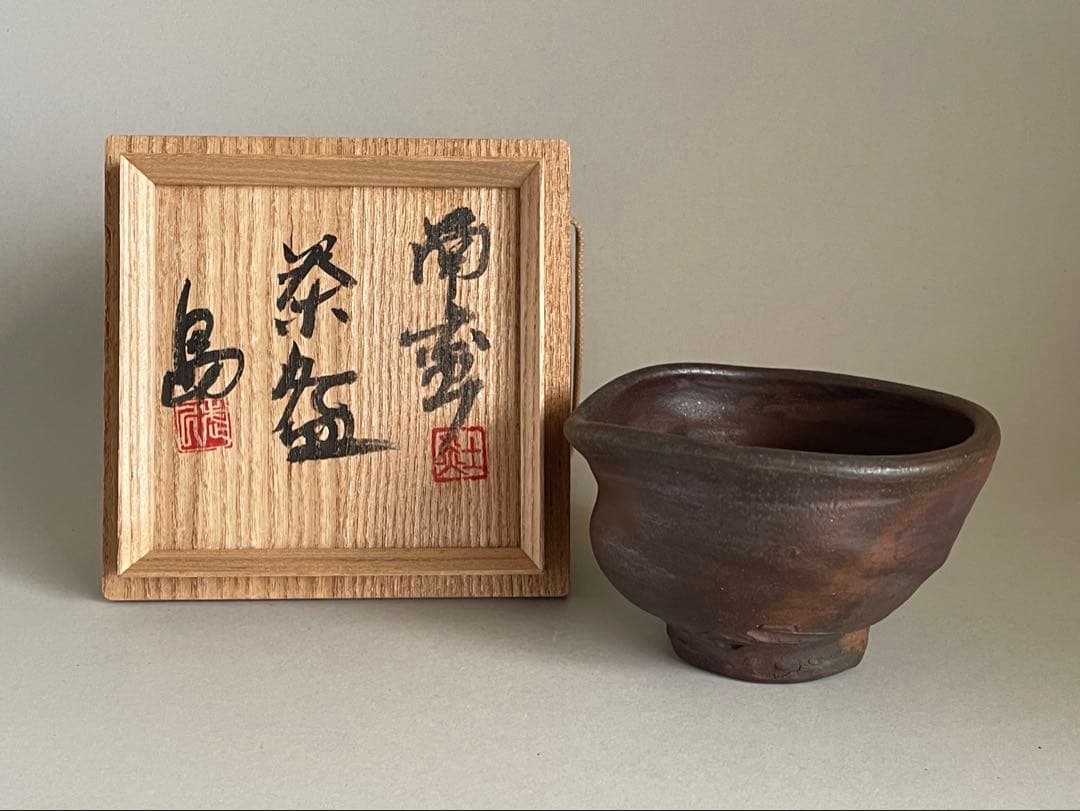 南蛮
茶盌
島